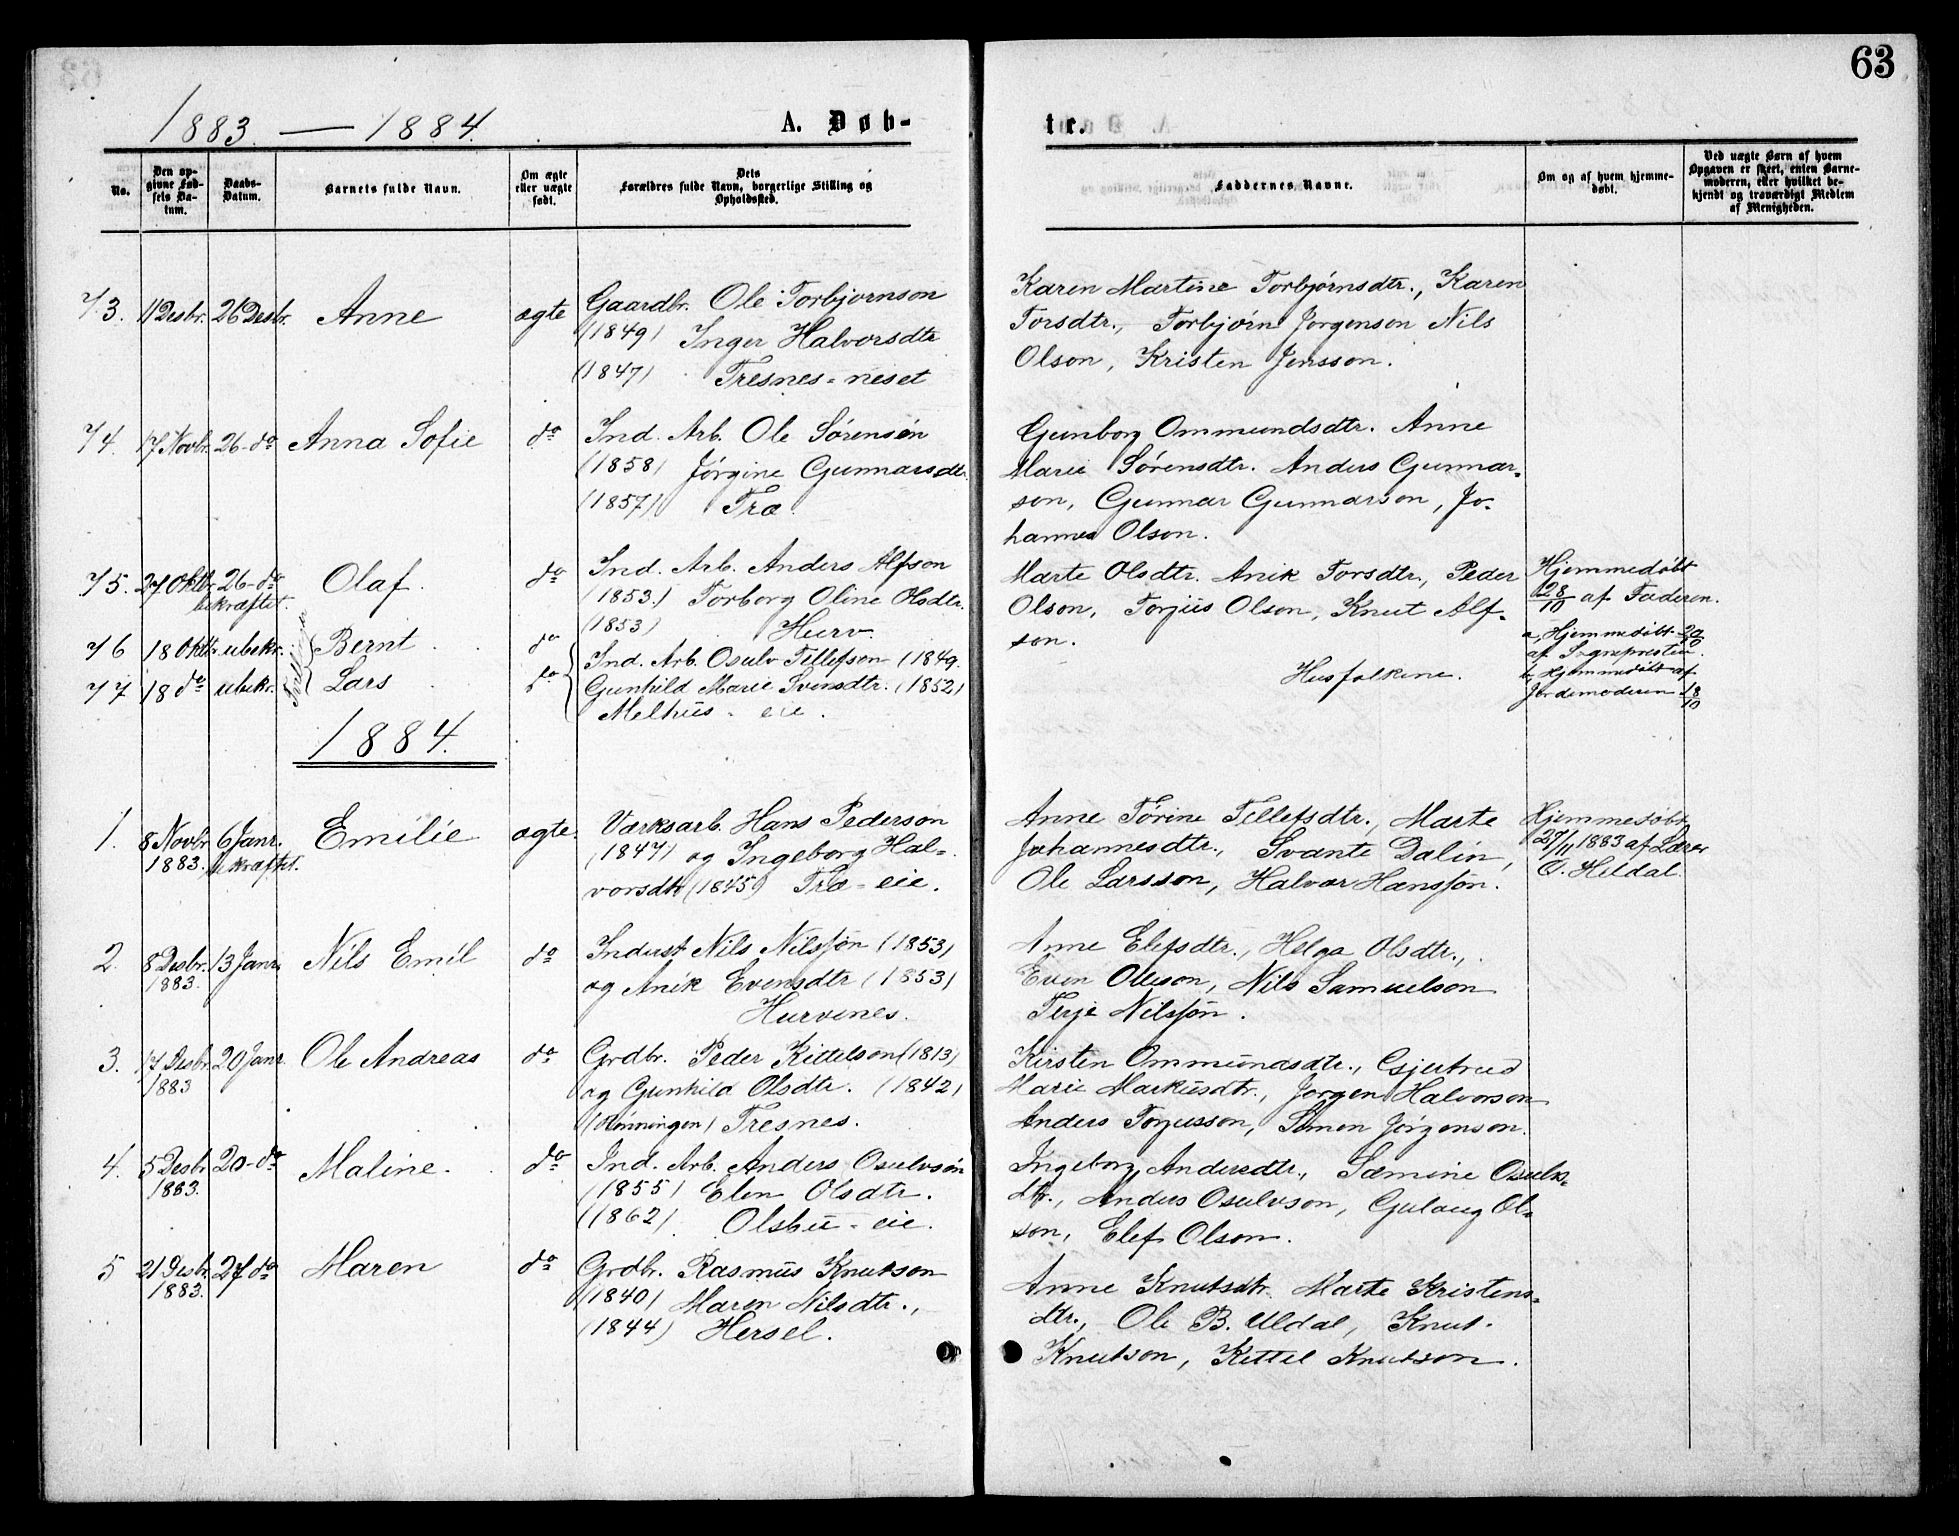 63
1883. — 1884.
A. Døb-
te.
No.
Den op-
givne Fød-
sels Da-
tum.
Daabs-
Datum.
Barnets fulde Navn.
Om ægte
eller uægte
født.
Dets
Forældres fulde Navn, borgerlige Stilling og
Opholdssted.
Faddernes Navne.
Om og af hvem hjemme-
døbt.
Ved uægte Børn af hvem
Opgaven er skeet, enten Barne-
moderen, eller hvilket be-
kjendt og troværdigt Medlem
af Menigheden.
73. 11 Desbr. 26 Desbr. Anne ægte
Gaardbr. Ole Torbjornson
(1849) Inger Halvorsdtr
(1847) Tresnes-neset
Karen Martine Torbjørnsdtr., Karen
Torsdtr., Torbjørn Jorgenson Nils
Olson, Kristen Jensson.
74. 17 Novbr. 26-do Anna Sofie do
Ind. Arb. Ole Sørensen
(1858) Jørgine Gunnarsdtr.
(1857) Træ.
Gunborg Ommundsdtr. Anne
Marie Sørensdtr. Anders Gunnar-
son, Gunnar Gunnarson, Jo-
hannes Olson.
75. 27 Oktbr. 26-do bekræftet. Olaf. do
Ind. Arb. Anders Alfson
(1853.) Torborg Oline Olsdtr.
(1853) Hurv.
Marte Olsdtr. Anik Torsdtr., Peder
Olson, Torjus Olson, Knut Alf-
son.
Hjemmedøbt
28/10 af Faderen.
76 18 Oktbr. ubekr. Bernt do
77 18 do ubekr. Lars do
Tvillinger
Ind. Arb. Osulv Tellefson (1849.
Gunhild Marie Svensdtr. (1852)
Melhus-eie.
Husfolkene.
a, Hjemmedøbt 20/10
af Sognepresten.
b, Hjemmedøbt af
Jordemoderen 18/10
1884.
1. 8 Novbr. 1883. 6 Janr. bekræftet. Emilie ægte.
Værksarb. Hans Pederson
(1847) og Ingeborg Hal-
vorsdtr (1845) Træ-eie.
Anne Tørine Tellefsdtr., Marte
Johannesdtr., Svante Dalin,
Ole Larsson, Halvor Hansson.
Hjemmedøbt
27/11 1883 af Lærer
O. Heldal.
2. 8 Desbr. 1883. 13 Janr. Nils Emil do
Inderst Nils Nilsson (1853)
og Anik Evensdtr (1853)
Hurvenes.
Anne Elefsdtr., Helga Olsdtr.,
Even Olleson, Nils Samuelson
Terje Nilsson.
3. 17 Desbr. 1883 20 Janr. Ole Andreas do
Grdbr. Peder Kittelson (1813)
og Gunhild Olsdtr. (1842)
(Rønningen) Tresnes.
Kirsten Ommundsdtr., Gjertrud
Marie Markusdtr., Jorgen Halvorson
Anders Torjusson, Simon Jørgenson.
4. 5 Desbr 1883. 20-do Maline. do
Ind. Arb. Anders Osulvson
(1855) Elen Olsdtr.
(1862) Olsbu-eie.
Ingeborg Andersdtr., Samine Osulvs-
dtr., Anders Osulvson, Gulaug Ol-
son, Elef Olson.
5 21 Desbr. 1883. 27 do Maren do
Grdbr. Rasmus Knutson
(1840) Maren Nilsdtr.,
(1844) Hersel.
Anne Knutsdtr. Marte Kristens-
dtr., Ole B. Uldal, Knut
Knutson, Kittel Knutson.